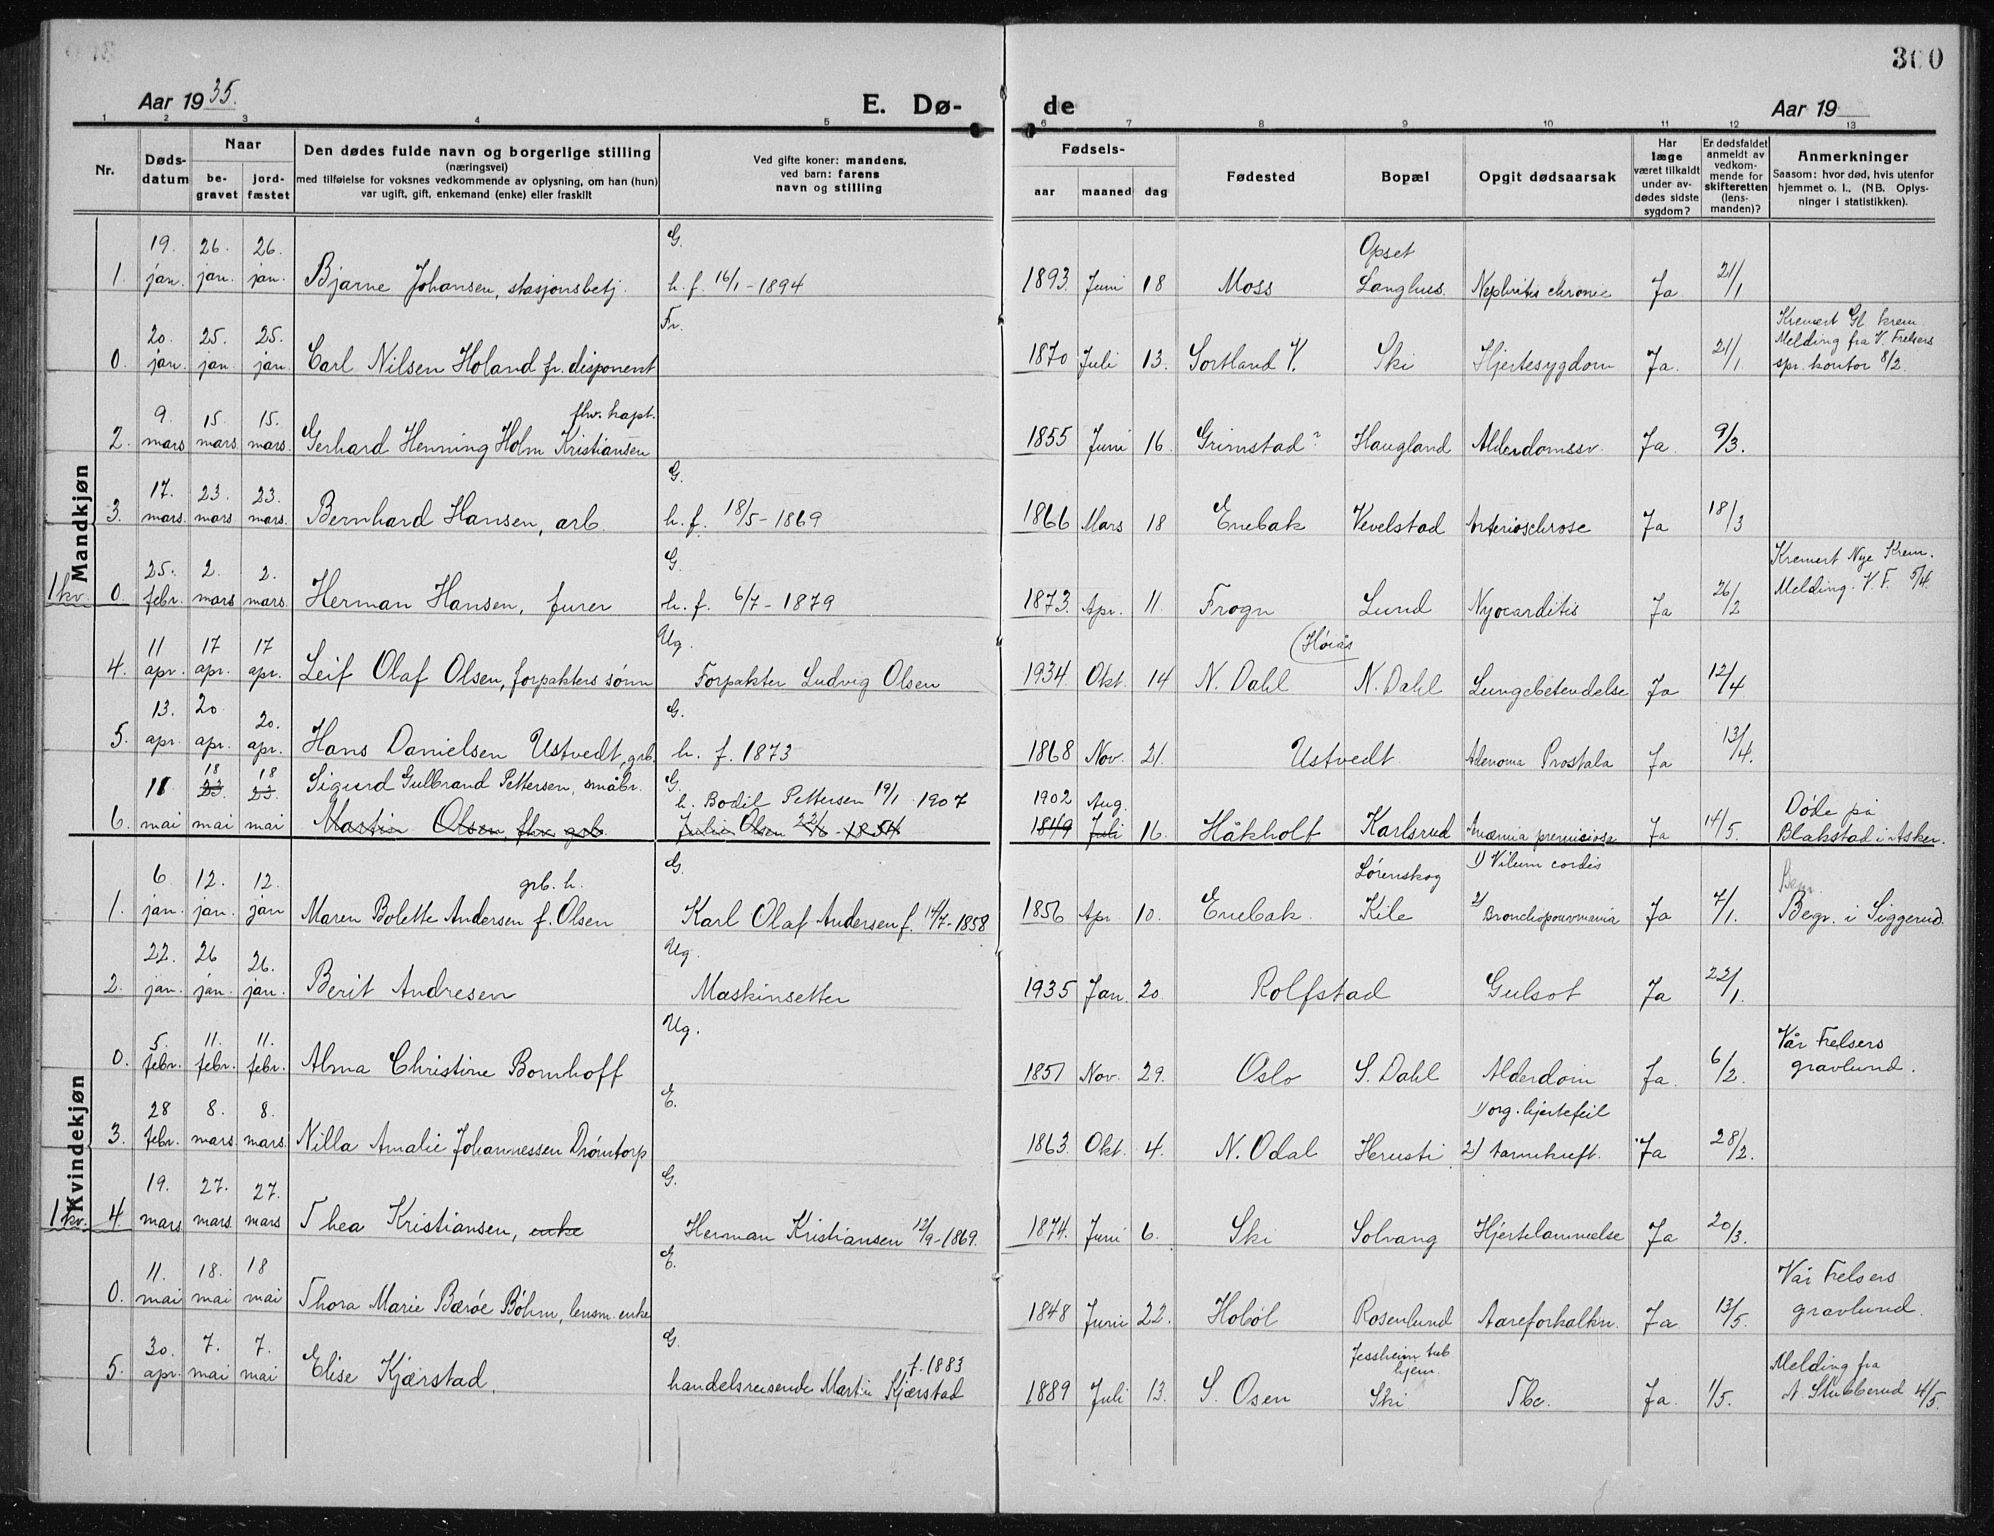 300
Aar 1935.
E. Dø-
de
Aar 19
1 2 3 4 5 6 7 8 9 10 11 12 13
Nr.
Døds-
datum
Naar
be-
gravet
jord-
fæstet
Den dødes fulde navn og borgerlige stilling
(næringsvei)
med tilføielse for voksnes vedkommende av oplysning, om han (hun)
var ugift, gift, enkemand (enke) eller fraskilt
Ved gifte koner: mandens,
ved barn: farens
navn og stilling
Fødsels-
aar maaned dag
Fødested
Bopæl
Opgit dødsaarsak
Har
læge
været tilkaldt
under av-
dødes sidste
sygdom?
Er dødsfaldet
anmeldt av
vedkom-
mende for
skifteretten
(lens-
manden)?
Anmerkninger
Saasom: hvor død, hvis utenfor
hjemmet o. l., (NB. Oplys-
ninger i statistikken).
Mandkjøn
19. 26. 26. G. Opset
1. jan. jan. jan. Bjarne Johansen, stasjonsbetj. h. f. 16/1 - 1894 1893 Juni 18 Moss Langhus Nephritis chronic Ja 21/1
20. 25. 25. Fr. Kremert Gl. krem.
Melding fra V. Frelsers
0. jan. jan. jan. Carl Nilsen Holand fr. disponent 1870 Juli 13. Sortland V. Ski Hjertesygdom Ja. 21/1 spr. kontor 8/2.
9. 15. 15. fhv. kapt.
2. mars mars mars. Gerhard Henning Holm Kristiansen 1855 Juni 16. Grimstad? Haugland Alderdomssv. Ja. 9/3.
17. 23. 23. G.
3. mars. mars mars. Bernhard Hansen, arb. h. f. 18/5 - 1869 1866 Mars 18 Enebak Vevelstad Arterioschrose Ja 18/3
25. 2. 2. G. Kremert Nye Krem.
1 kv. 0. febr. mars mars. Herman Hansen, furer h. f. 6/7 - 1879 1873. Apr. 11. Frogn Lund Myocarditis Ja 26/2 Melding. V. F. 5/4.
11 17 17 Ug. (Høiås
4. apr. apr. apr. Leif Olaf Olsen, forpakters sønn Forpakter Ludvig Olsen 1934. Okt. 14 N. Dahl N. Dahl Lungebetendelse Ja 12/4
13. 20 20. G.
5. apr. apr. apr. Hans Danielsen Ustvedt, grb. h. f. 1873 1868 Nov. 21. Ustvedt Adenoma Prostata Ja 13/4.
11 18 23. 18 23. Sigurd Gulbrand Pettersen, småbr. G. h. Bodil Pettersen 19/1 1907 1902 Aug.
6. mai mai mai Martin Olsen, fhv. grb. Julie Olsen 22/6 - 1854 1849 Juli 16. Håkholt Karlsrud Anæmia premiciosa Ja 14/5. Døde på
Blakstad i Asker.
Kvindekjøn
6 12. 12. grb. h. G. Lørenskog 1) Vilium cordis
1. jan. jan. jan Maren Bolette Andersen f. Olsen Karl Olaf Andersen f. 14/7 - 1858 1856 Apr. 10. Enebak Kile 2) Bronchopounmania Ja 7/1. Begr. i Siggerud.
22. 26 26. Ug.
2. jan. jan. jan. Berit Andresen Maskinsetter 1935 Jan. 20. Rolfstad Gulsot Ja 22/1.
5. 11. 11. Ug. Vår Frelsers
0. febr. febr. febr. Alma Christine Bomhoff 1851 Nov. 29. Oslo S. Dahl Alderdom Ja. 6/2. gravlund.
28 8. 8. E. 1) org. hjertefeil
3. febr. mars mars. Nilla Amalie Johannessen Drømtorp 1863 Okt. 4. N. Odal Herusti 2) tarmkreft. Ja 28/2.
19. 27. 27. G.
1 kv. 4. mars mars. mars Thea Kristiansen, enke Herman Kristiansen 12/9 - 1869. 1874. Juni 6. Ski Solvang Hjertelammelse Ja 20/3.
11. 18. 18 E. Vår Frelsers
0. mai mai mai Thora Marie Bærøe Bøhm, lensm. enke 1848 Juni 22. Hobøl Rosenlund Aareforkalkn. Ja 13/5. gravlund.
30. 7. 7. G. f. 1883 Jessheim tub.
hjem. Melding fra
5. apr. mai mai Elise Kjærstad, handelsreisende Martin Kjærstad 1889 Juli 13. S. Osen Ski Tbc. Ja. 1/5. A. Stubberud 4/5.